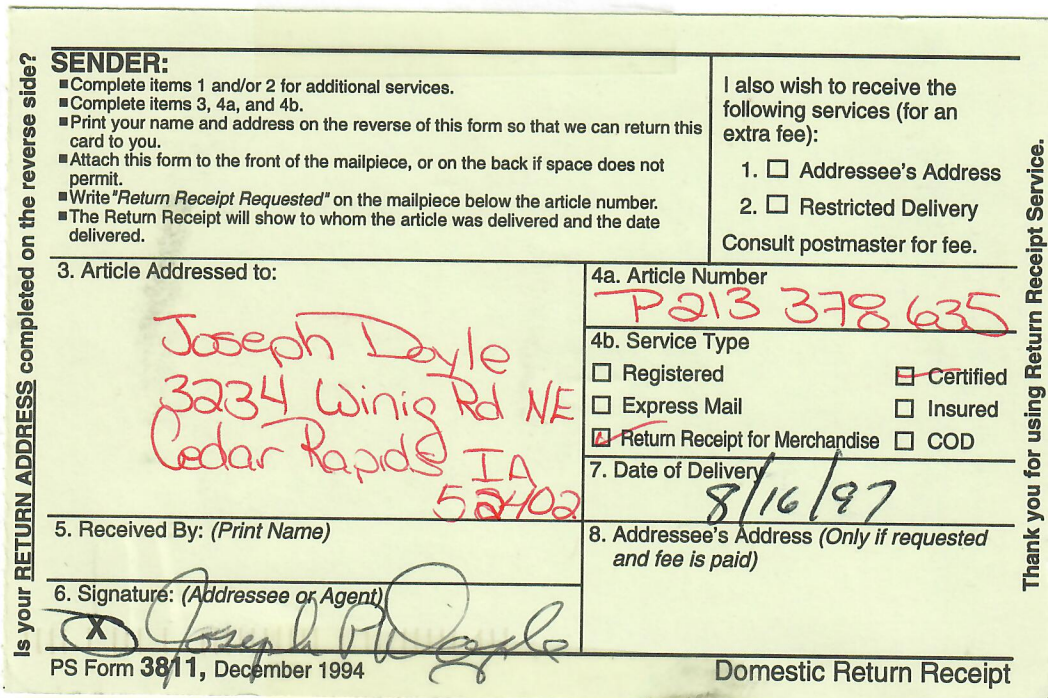 Is your RETURN ADDRESS completed on the reverse side?
SENDER:
■Complete items 1 and/or 2 for additional services.
■Complete items 3, 4a, and 4b.
■Print your name and address on the reverse of this form so that we can return this
card to you.
■Attach this form to the front of the mailpiece, or on the back if space does not
permit.
■Write "Return Receipt Requested" on the mailpiece below the article number.
■The Return Receipt will show to whom the article was delivered and the date
delivered.
I also wish to receive the
following services (for an
extra fee):
1. ☐ Addressee's Address
2. ☐ Restricted Delivery
Consult postmaster for fee.
3. Article Addressed to:
Joseph Doyle
3234 Winig Rd NE
Cedar Rapids IA
52402
4a. Article Number
P213 378 635
4b. Service Type
☐ Registered
☑ Certified
☐ Express Mail
☐ Insured
☑ Return Receipt for Merchandise
☐ COD
7. Date of Delivery
8/16/97
5. Received By: (Print Name)
8. Addressee's Address (Only if requested
and fee is paid)
6. Signature: (Addressee or Agent)
X Joseph P Doyle
PS Form 3811, December 1994
Domestic Return Receipt
Thank you for using Return Receipt Service.